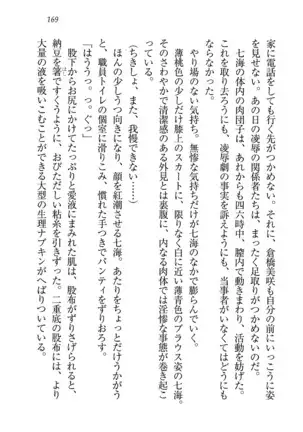 169
家に電話をしても行く先がつかめない。それに、倉橋美咲も自分の前にいっこうに姿
を見せない。あの日の凌辱の関係者たちは、まったく足取りがつかめないのだ。
七海の体内の肉団子は、あれから四六時中、膣内で動きまわり、活動を妨げた。
これを取り去ろうにも、凌辱劇の事実を訴えようにも、当事者がいなくてはどうにも
ならなかった。
やり場のない気持ち。無惨な気持ちだけが七海のなかで膨らんでいた。
薄桃色の少しだけ膝上のスカートに、限りなく白に近い薄青色のブラウス姿の七海。
そのさわやかで清潔感のある外見とは裏腹に、内なる肉体では淫惨な事態が巻き起こ
っていた。
(ちきしょ、まだ、我慢できない……)
ほんの少しうつ向きになり、顔を紅潮させる七海。あたりをちょっとだけうかがう
と、職員トイレの個室に滑りこみ、慣れた手つきでパンティをずりおろす。
「はううっ。っ。ぐっ」
股下からお尻にかけてたっぷりと愛液にまみれた肌は、股布がずりさげられると、
納豆を箸ですくうように、おびただしい粘糸を引きずった。二重底の股布には、より
大量の液を吸いこむことができる大型の生理ナプキンがへばりついている。